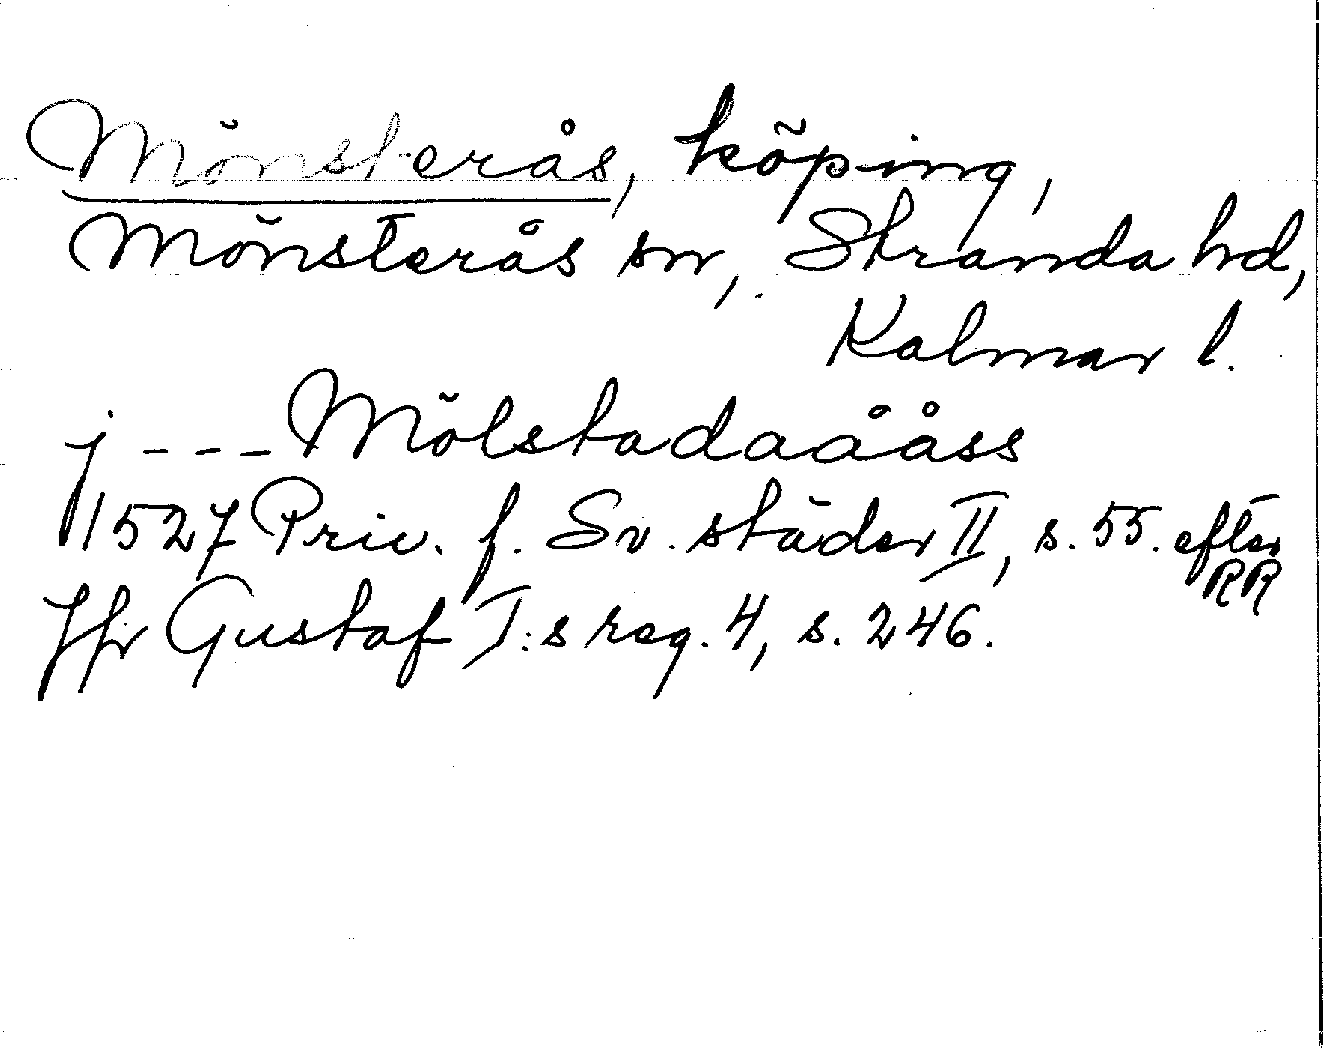 Mönsterås, köping,
Mönsterås sn, Stranda hd,
Kalmar l.
j --- Mölstadaååss
1527 Priv. f. Sv. städer II, s. 55. efter RR
Jfr Gustaf I:s reg. 4, s. 246.